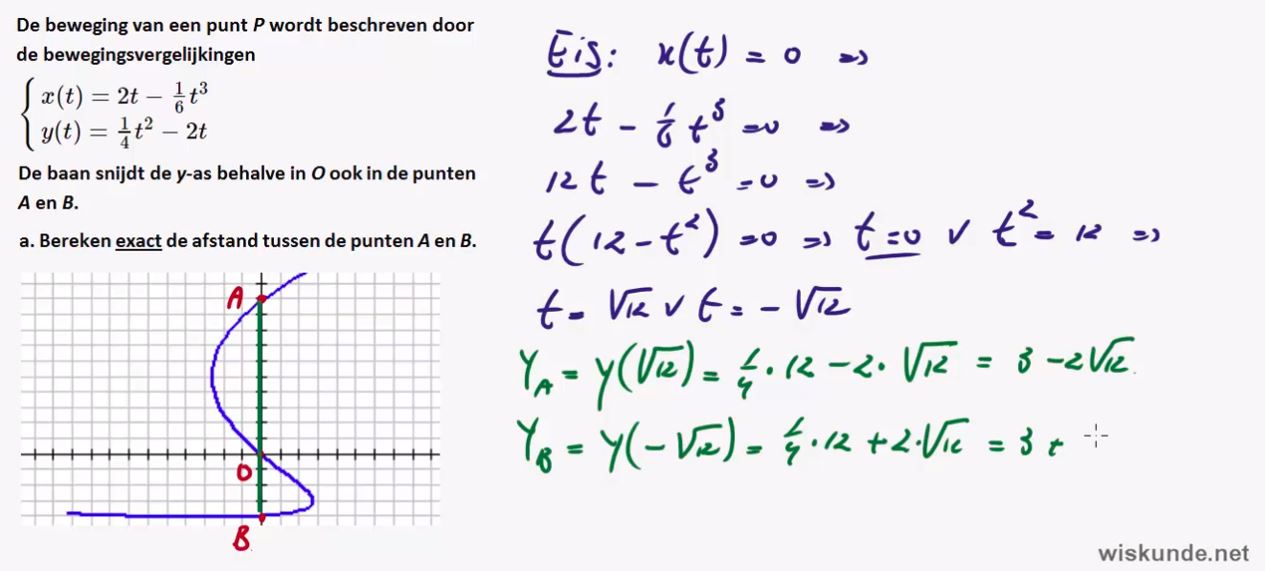 De beweging van een punt P wordt beschreven door
de bewegingsvergelijkingen
x(t) = 2t − 1/6 t³
y(t) = 1/4 t² − 2t
De baan snijdt de y-as behalve in O ook in de punten
A en B.
a. Bereken exact de afstand tussen de punten A en B.
A
O
B
Eis: x(t) = 0 ⇒
2t − 1/6 t³ = 0 ⇒
12t − t³ = 0 ⇒
t(12 − t²) = 0 ⇒ t = 0 ∨ t² = 12 ⇒
t = √12 ∨ t = − √12
Y_A = Y(√12) = 1/4 · 12 − 2 · √12 = 3 − 2√12
Y_B = Y(−√12) = 1/4 · 12 + 2 · √12 = 3 +
wiskunde.net